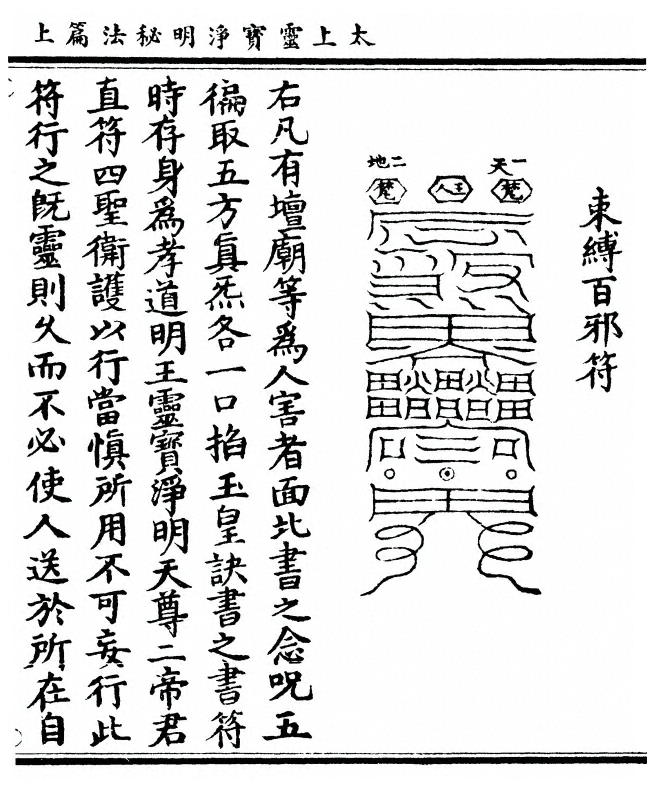 太上靈寶淨明秘法篇上
束縛百邪符
一天
二地
梵
王人
梵
右凡有壇廟等為人害者面北書之念呪五
徧取五方眞炁各一口掐玉皇訣書之書符
時存身為孝道明王靈寶淨明天尊二帝君
直符四聖衛護以行當愼所用不可妄行此
符行之旣靈則久而不必使人送於所在自